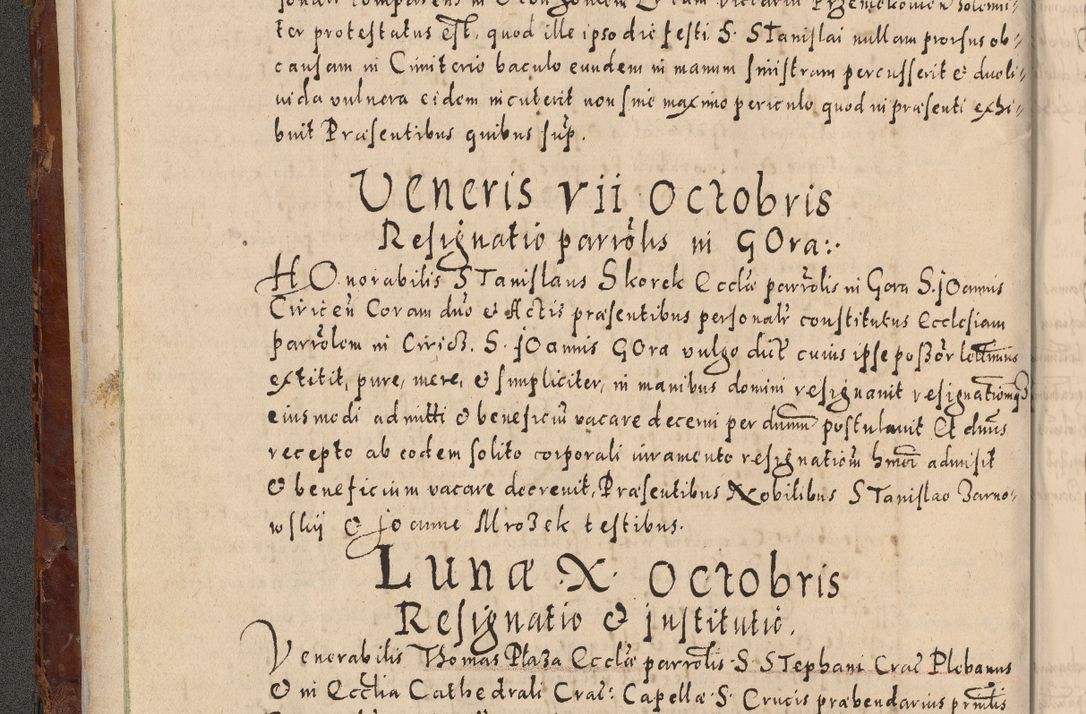 ter protestatus est, quod ille ipso die festi S. Stanislai nullam prorsus ob-
causam in Cimiterio baculo eundem in manum sinistram percusserit et duo li-
vida vulnera eidem incuterit non sine maximo periculo quod in præsenti exhi-
buit Præsentibus quibus sup.
Veneris vii Octobris
Resignatio parrolis in GOra:.
HOnorabilis STanislaus Skorek Ecclæ parrolis in Gora S. jOannis
Ciricen Coram dno et Actis præsentibus personalr constitutus Ecclesiam
parrolem in S. jOannis GOra vulgo dict cuius ipse possor lettimus
extitit, pure, mere, et simpliciter, in manibus domini resignavit resignationemq3
eiusmodi admitti et beneficiu vacare decerni per dnum postulavit Et dnus
recepto ab eodem solito corporali iuramento resignatiom hmoi admisit
et beneficium vacare decrevit, Præsentibus Nobilibus STanislao Zarno-
wskij et joanne Mrozek testibus.
Lunæ X Octobris
Resignatio et institutio.
Venerabilis Thomas Plaza Ecclæ parrolis S. STephani Crac Plebanus
et in Ecclia Cathedrali Crac: Capellæ S. Crucis præbendarius